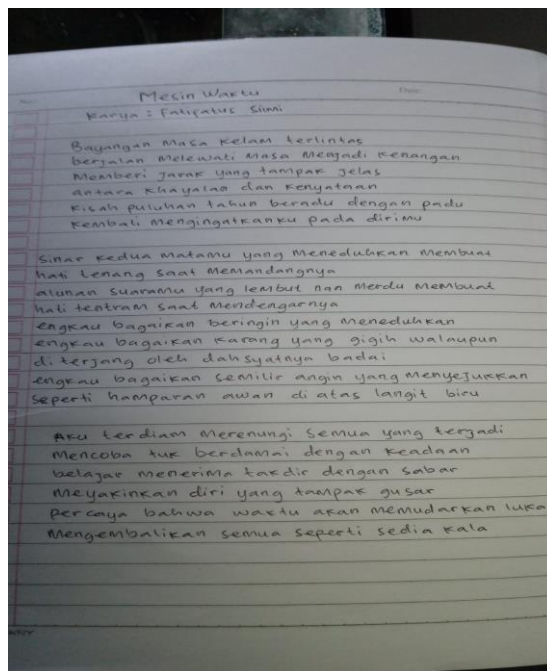 Mesin Waktu
Karya : Fatifatus Sinni
Bayangan masa kelam terlintas
berjalan melewati masa menjadi kenangan
Memberi jarak yang tampak jelas
antara khayalan dan kenyataan
Kisah puluhan tahun beradu dengan padu
Kembali mengingatkanku pada dirimu
Sinar kedua matamu yang meneduhkan membuat
hati tenang saat memandangnya
alunan suaramu yang lembut nan merdu membuat
hati tentram saat mendengarnya
engkau bagaikan beringin yang meneduhkan
engkau bagaikan karang yang gigih walaupun
diterjang oleh dahsyatnya badai
engkau bagaikan semilir angin yang menyejukkan
seperti hamparan awan di atas langit biru
Aku terdiam merenungi semua yang terjadi
Mencoba tuk berdamai dengan keadaan
belajar menerima takdir dengan sabar
Meyakinkan diri yang tampak gusar
percaya bahwa waktu akan memudarkan luka
Mengembalikan semua seperti sedia kala